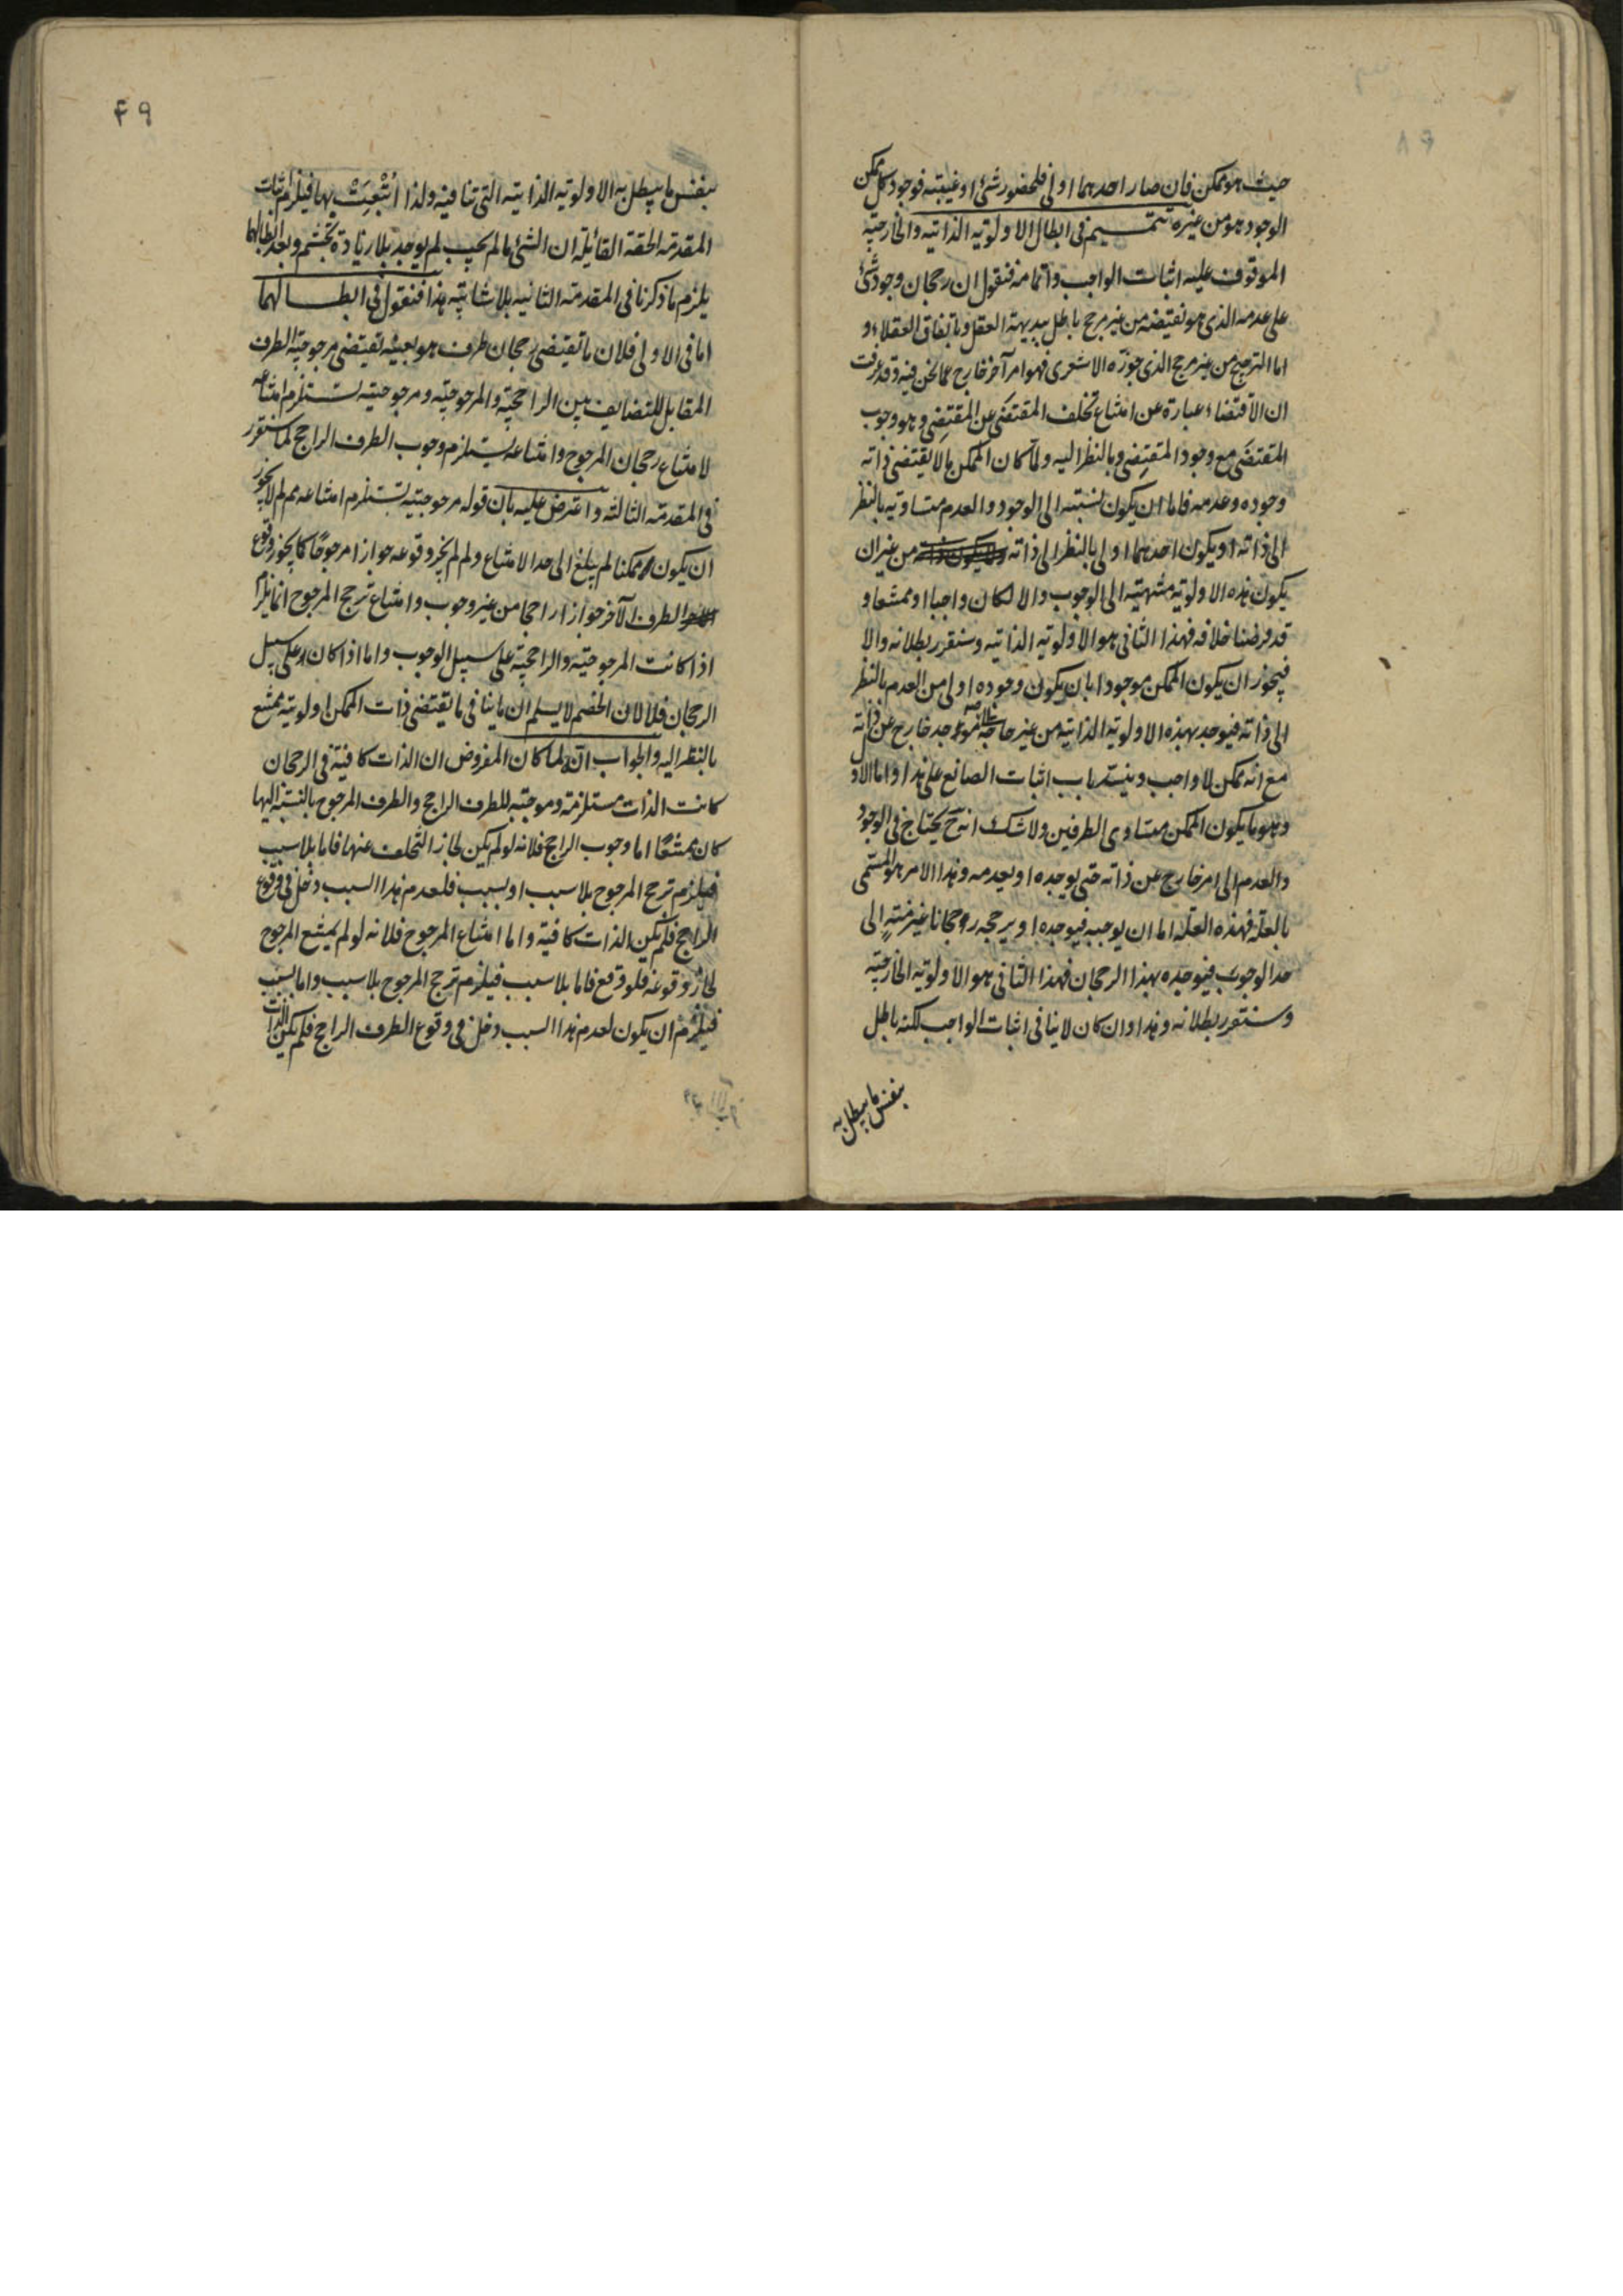 حيث هو ممكن فان صار احدهما اولى فلحضور شئ او غيبته فوجود كل ممكن
الوجود هو من غيره تتميم فى ابطال الاولوية الذاتية والخارجية
الموقوف عليه اثبات الواجب واتمامه فنقول ان رجحان وجود شئ
على عدمه الذى هو نقيضه من غير مرجح باطل ببديهة العقل وباتفاق العقلاء و
اما الترجيح من غير مرجح الذى جوزه الاشعرى فهو امر آخر خارج عما نحن فيه وقد عرفت
ان الاقتضاء عبارة عن امتناع تخلف المقتضَى عن المقتضِى وهو وجوب
المقتضَى مع وجود المقتضِى وبالنظر اليه ولما كان الممكن ما لا يقتضى ذاته
وجوده وعدمه فاما ان يكون نسبته الى الوجود والعدم متساوية بالنظر
الى ذاته او يكون احدهما اولى بالنظر الى ذاته من غير ان
يكون هذه الاولوية منتهية الى الوجوب والا لكان واجبا او ممتنعا و
قد فرضنا خلافه فهذا الثانى هو الاولوية الذاتية وسنقرر بطلانه والا
فيجوز ان يكون الممكن موجودا بان يكون وجوده اولى من العدم بالنظر
الى ذاته فيوجد بهذه الاولوية الذاتية من غير حاجة موجد خارج عن ذاته
مع انه ممكن لا واجب وينسد باب اثبات الصانع على هذا واما الاول
وهو ما يكون الممكن متساوى الطرفين ولا شك انه ح يحتاج فى الوجود
والعدم الى امر خارج عن ذاته حتى يوجده او يعدمه وهذا الامر هو المسمى
بالعلة فهذه العلة اما ان يوجبه فيوجده او يرجحه رجحانا غير منته الى
حد الوجوب فيوجده بهذا الرجحان فهذا الثانى هو الاولوية الخارجية
وسنقرر بطلانه وهذا وان كان لا ينافى اثبات الواجب لكنه باطل
بنفس ما يبطل به
۴۹
بنفس ما يبطل به الاولوية الذاتية التى تنافيه ولذا اُتْبِعَتْ بها فيلزم اثبات
المقدمة الحقة القائلة ان الشئ ما لم يجب لم يوجد بلا زيادة تجشم وبعد ابطالها
يلزم ما ذكرنا فى المقدمة الثانية بلا شائبة هذا فنقول فى ابطالهما
اما فى الاولى فلان ما تقتضى رجحان طرف هو بعينه تقتضى مرجوحية الطرف
المقابل للتضايف بين الراجحية والمرجوحية ومرجوحيته تستلزم امتناعه
لامتناع رجحان المرجوح وامتناعه يستلزم وجوب الطرف الراجح كما سنقرر
فى المقدمة الثالثة واعترض عليه بان قوله مرجوحيته تستلزم امتناعه مم لم لا يجوز
ان يكون ممكنا لم يبلغ الى حد الامتناع ولم لم يجز وقوعه جوازا مرجوحًا كما يجوز وقوع
الطرف الآخر جوازا راجحا من غير وجوب وامتناع ترجح المرجوح انما يلزم
اذا كانت المرجوحية والراجحية على سبيل الوجوب واما اذا كان على سبيل
الرجحان فلا لان الخصم لا يسلم ان ما ينافى ما يقتضى ذات الممكن اولوية ممتنع
بالنظر اليه والجواب انه لما كان المفروض ان الذات كافية فى الرجحان
كانت الذات مستلزمة وموجبة للطرف الراجح والطرف المرجوح بالنسبة اليها
كان ممتنعًا اما وجوب الراجح فلانه لو لم يكن لجاز التخلف عنها فاما بلا سبب
فيلزم ترجح المرجوح بلا سبب او بسبب فلعدم هذا السبب دخل فى وقوع
الراجح فلم يكن الذات كافية واما امتناع المرجوح فلانه لو لم يمتنع المرجوح
لجاز وقوعه فلو وقع فاما بلا سبب فيلزم ترجح المرجوح بلا سبب واما بسبب
فيلزم ان يكون لعدم هذا السبب دخل فى وقوع الطرف الراجح فلم يكن الذات